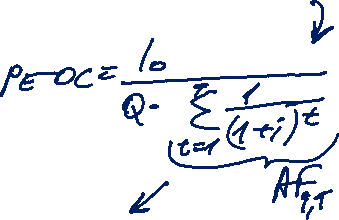 PE-OC = I₀ / (Q · Σ_{t=1}^{T} 1/(1+i)^t)
AF_{i,T}